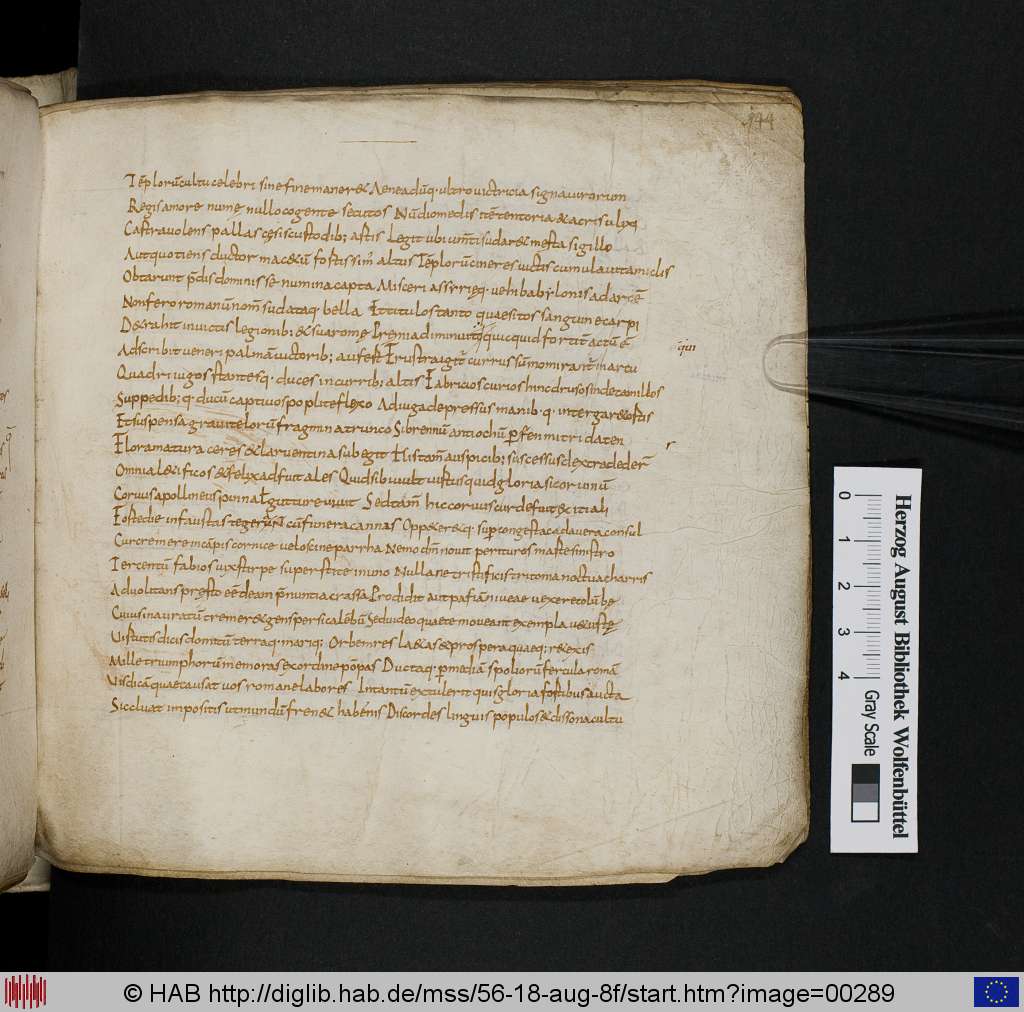 144
Tēplorū cultu celebri sine fine maner& Aeneadūq· ultro victricia signa virorum
Regis amore nume nullo cogente secutos Nū diomedis itē tentoria & acris ulyxq
Castra volens pallas cęsis custodib; astis Legit ubi um̄ti sudar& mesta sigillo
Aut quotiens ductor macedū fostissim̄ altus Tēplorū cineres victis cumulavit amiclis
Obtarunt p̄dis dominis se numina capta Misceri assyrięq· vehi babylonis ad arcē
Non fero romanū nom̄ sudataq· bella Et titulos tanto quaesitos sanguine carpi
D&rahit invictis legionib; & sua romę Premia diminuit q quicquid fortit̄ actū ē
Adscribit veneri palmā victorib; aufest Frustra igit̄ currus sūmo mirant̄ in arcu
q̄in
Quadriiugos stantesq· duces in currib; altis Fabricios curios hinc drusos inde camillos
Suppedib; q· ducū captivos poplite flexo Ad iuga depressus manib· q· inter gar& ostis
Et suspensa gravi telorū fragmina trunco Si brennū antiochū p̄sen mitridaten
r
Flora matura ceres & larventina subegit His tam̄ auspicib; successus dextra deder̄
Omnia l&ificos & felyx advuit ales Quid sibi vult vistus quid gloria si corvinū
Corvus apollineus pinna t̄ gutture iuvit Sed tam̄ hic corvus cur defuit exitiali
Foste die infaustas tegerent cū funera cannas Oppeter&q· sup congesta cadavera consul
Cur cremere in cāpis cornice vel oscine parrha Nemo dm̄ novit perituros maste sinistro
Tercentū fabios vix stirpe superstite in uno Nullane tristificis tritonia noctua charris
Advolitans pręsto eē deam p̄nuntia crassa Prodidit aut pafiam niveae vexere colūbę
Cuius inauratū tremer& gens persica lēbū Sed video quae te moveant exempla v&ustę
Uistutis dicis domitū terraq· mariq; Orbem res l&as & prospera quaeq; r&exis
Mille triumphorū memoras ex ordine pōpas Ductaq· p̄ mediā spoliorū fercula romā
Vis dicā quae causa t vos romane labores In tantū extulerit quis gloria fostibus aucta
Sic cluat impositis ut mundū fren& habenis Discordes linguis populos & dissona cultu
0 1 2 3 4
Gray Scale
Herzog August Bibliothek Wolfenbüttel
© HAB http://diglib.hab.de/mss/56-18-aug-8f/start.htm?image=00289